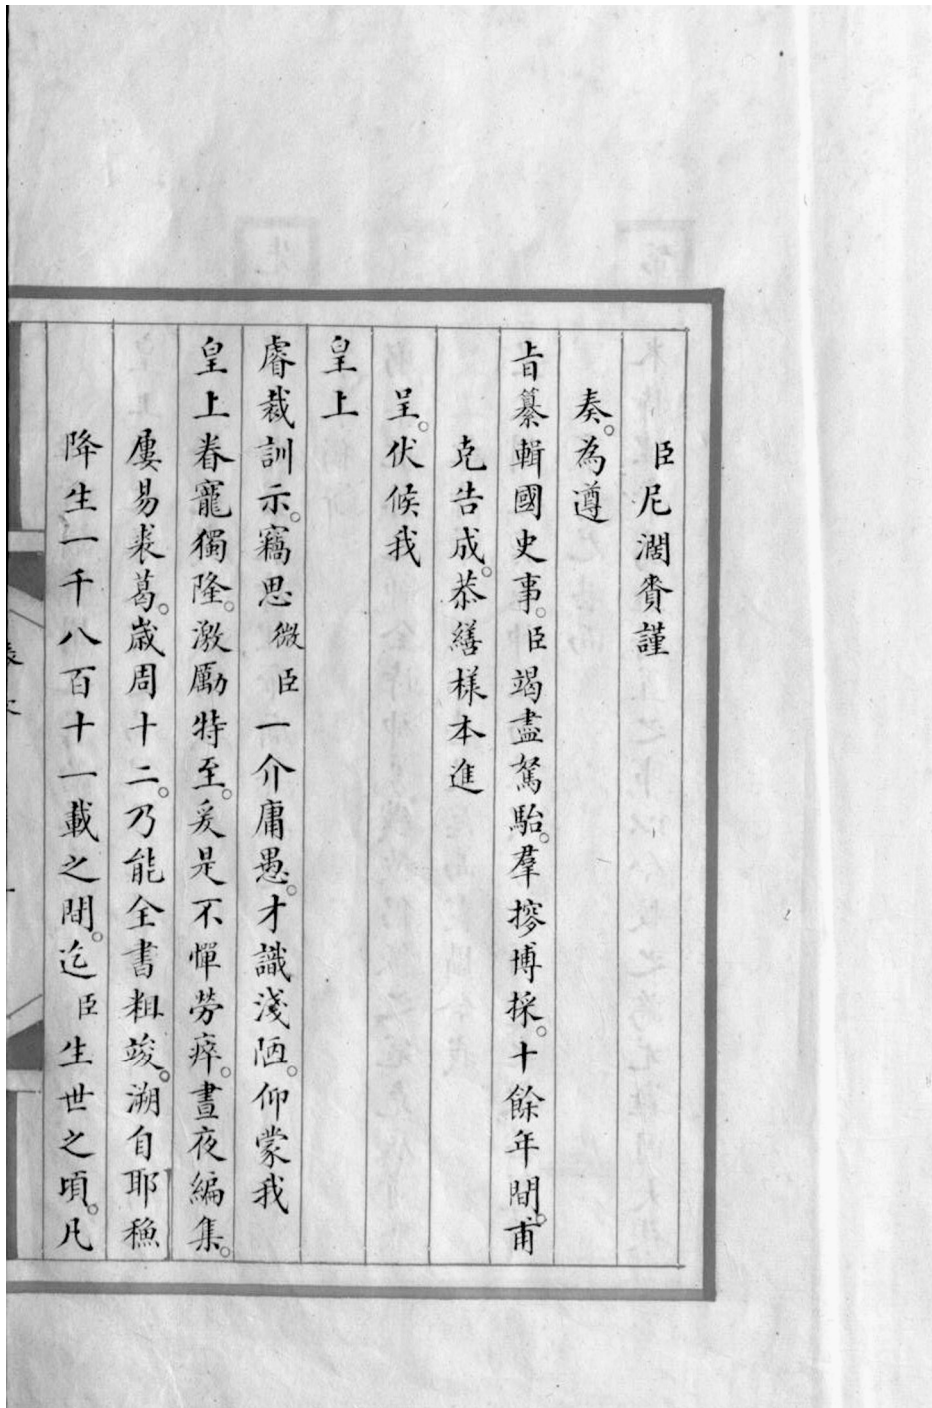 臣尼濶賚謹
奏。為遵
旨纂輯國史事。臣竭盡駑駘。羣摉博採。十餘年間。甫
克告成。恭繕樣本進
呈。伏候我
皇上
睿裁訓示。竊思微臣一介庸愚。才識淺陋。仰蒙我
皇上眷寵獨隆。激勵特至。爰是不憚勞瘁。晝夜編集。
屢易裘葛。歲周十二。乃能全書粗竣。溯自耶穌
降生一千八百十一載之間。迄臣生世之頃。凡